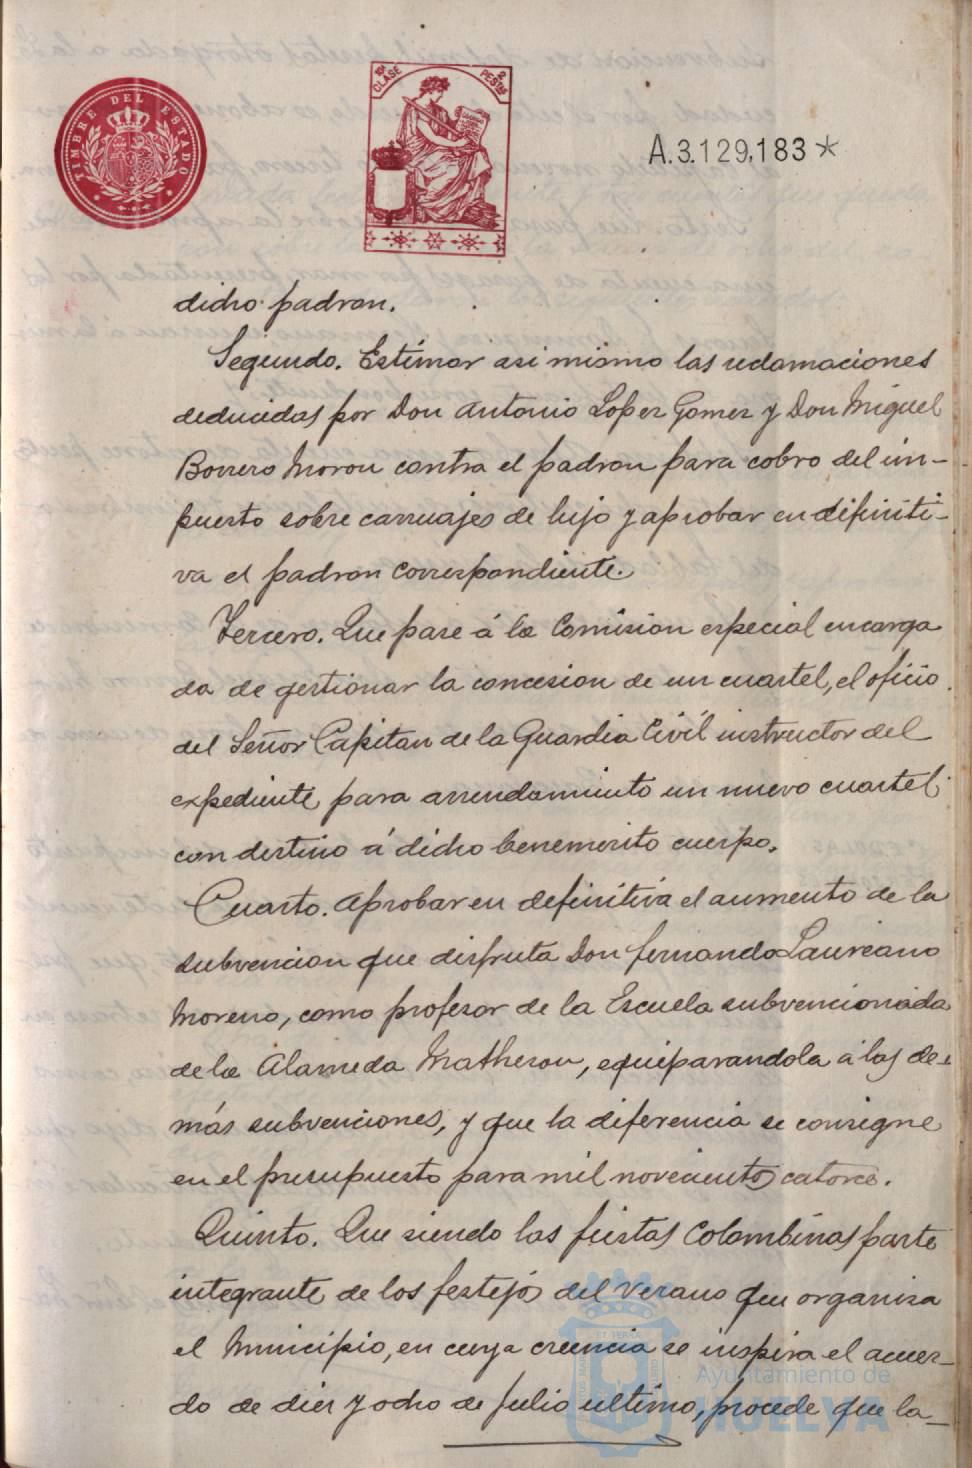 TIMBRE DEL ESTADO
10ª CLASE
2 PESTAS
A.3.129,183*
dicho padron.
Segundo. Estimar asi mismo las reclamaciones
deducidas por Don Antonio Lopez Gomez y Don Miguel
Borrero Moron contra el padron para cobro del im-
puesto sobre carruajes de lujo y aprobar en definiti-
va el padron correspondiente.
Tercero. Que pase á la Comision especial encarga
da de gestionar la concesion de un cuartel, el oficio
del Señor Capitan de la Guardia Civil instructor del
expediente para arrendamiento un nuevo cuartel
con destino á dicho benemerito cuerpo.
Cuarto. Aprobar en definitiva el aumento de la
subvencion que disfruta Don Fernando Laureano
Moreno, como profesor de la Escuela subvencionada
de la Alameda Matheson, equiparandola a las de-
más subvenciones, y que la diferencia se consigne
en el presupuesto para mil novecientos catorce.
Quinto. Que siendo las fiestas Colombinas parte
integrante de los festejos del Verano que organiza
el Municipio, en cuya creencia se inspira el acuer-
do de diez y ocho de Julio ultimo, procede que la-
Ayuntamiento de
HUELVA